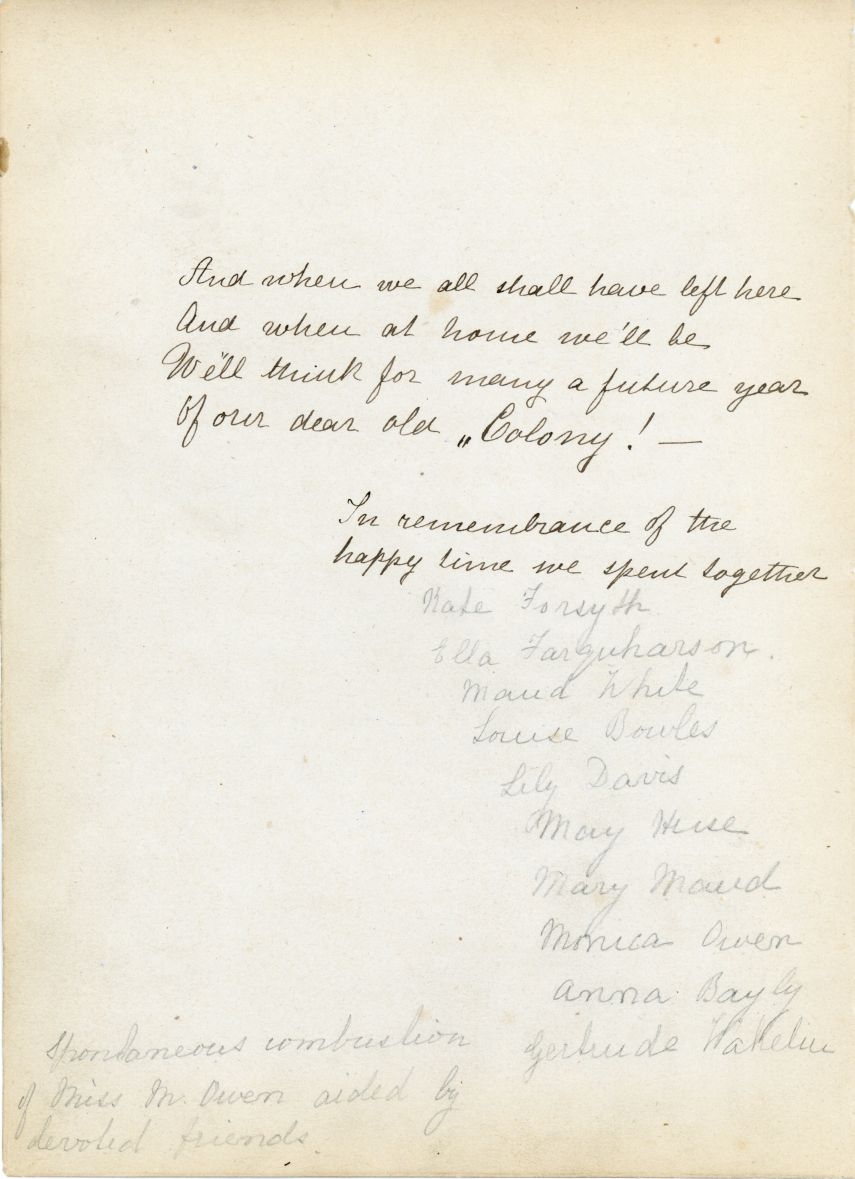 And when we all shall have left here
And when at home we'll be
We'll think for many a future year
Of our dear old „Colony! —
In remembrance of the
happy time we spent together
Kate Forsyth
Ella Farquharson.
Maud White
Louise Bowles
Lily Davis
May Huse
Mary Maud
Monica Owen
Anna Bayly
Gertrude Wakelin
Spontaneous combustion
of Miss M. Owen aided by
devoted friends.